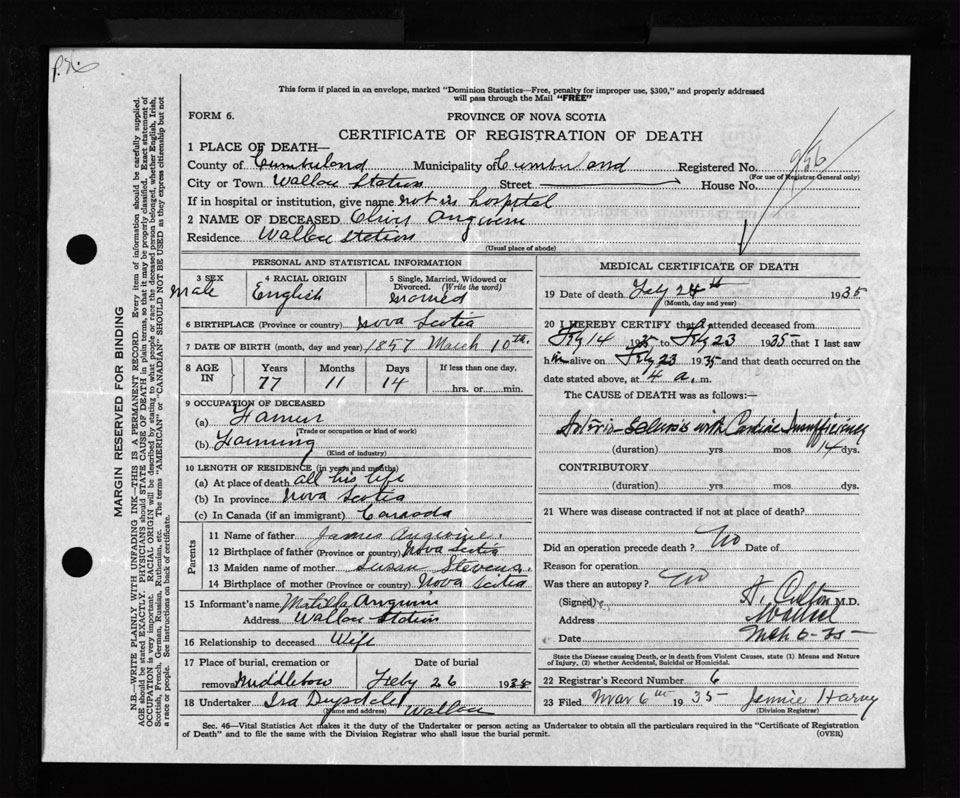 This form if placed in an envelope, marked "Dominion Statistics—Free, penalty for improper use, $300," and properly addressed
will pass through the Mail "FREE"
FORM 6.
PROVINCE OF NOVA SCOTIA
CERTIFICATE OF REGISTRATION OF DEATH
1 PLACE OF DEATH—
County of Cumberland Municipality of Cumberland Registered No. 956
(For use of Registrar General only)
City or Town Wallace Station Street House No.
If in hospital or institution, give name not in hospital
2 NAME OF DECEASED
Residence Wallace Station
(Usual place of abode)
PERSONAL AND STATISTICAL INFORMATION
3 SEX Male
4 RACIAL ORIGIN English
5 Single, Married, Widowed or Divorced. (Write the word) Married
6 BIRTHPLACE (Province or country) Nova Scotia
7 DATE OF BIRTH (month, day and year) 1857 March 10th
8 AGE IN Years 77 Months 11 Days 14 If less than one day, hrs. or min.
9 OCCUPATION OF DECEASED
(a) Farmer
(Trade or occupation or kind of work)
(b) Farming
(Kind of industry)
10 LENGTH OF RESIDENCE (in years and months)
(a) At place of death all his life
(b) In province Nova Scotia
(c) In Canada (if an immigrant) Canada
Parents
11 Name of father James Angwine.
12 Birthplace of father (Province or country) Nova Scotia
13 Maiden name of mother Susan Stevens.
14 Birthplace of mother (Province or country) Nova Scotia
15 Informant's name Matilda
Address Wallace Station
16 Relationship to deceased Wife
17 Place of burial, cremation or removal Date of burial
Feby 26 193
18 Undertaker Ira Drysdale Wallace
(Name and address)
MEDICAL CERTIFICATE OF DEATH
19 Date of death Feby 24th 1935
(Month, day and year)
20 I HEREBY CERTIFY that I attended deceased from
Feby 14 1935 to Feby 23 1935 that I last saw
him alive on Feby 23 1935 and that death occurred on the
date stated above, at 4 a. m.
The CAUSE of DEATH was as follows:—
with Cardiac Insufficiency
(duration) yrs. mos. 14 dys.
CONTRIBUTORY
(duration) yrs. mos. dys.
21 Where was disease contracted if not at place of death?
Did an operation precede death? No Date of
Reason for operation
Was there an autopsy? No
(Signed) M.D.
Address Wallace
Date Mch 6-35
State the Disease causing Death, or in death from Violent Causes, state (1) Means and Nature
of Injury, (2) whether Accidental, Suicidal or Homicidal.
22 Registrar's Record Number 6
23 Filed Mar 6th 1935 Jennie
(Division Registrar)
Sec. 46—Vital Statistics Act makes it the duty of the Undertaker or person acting as Undertaker to obtain all the particulars required in the "Certificate of Registration
of Death" and to file the same with the Division Registrar who shall issue the burial permit.
(OVER)
MARGIN RESERVED FOR BINDING
N.B.—WRITE PLAINLY WITH UNFADING INK—THIS IS A PERMANENT RECORD. Every item of information should be carefully supplied.
AGE should be stated EXACTLY. PHYSICIANS should STATE CAUSE OF DEATH in plain terms, so that it may be properly classified. Exact statement of
OCCUPATION is very important. RACIAL ORIGIN will be described by stating to what people or race the deceased person belonged, whether English, Irish,
Scottish, French, German, Russian, Ruthenian, etc. The terms "AMERICAN" or "CANADIAN" SHOULD NOT BE USED as they express citizenship but not
a race or people. See instructions on back of certificate.